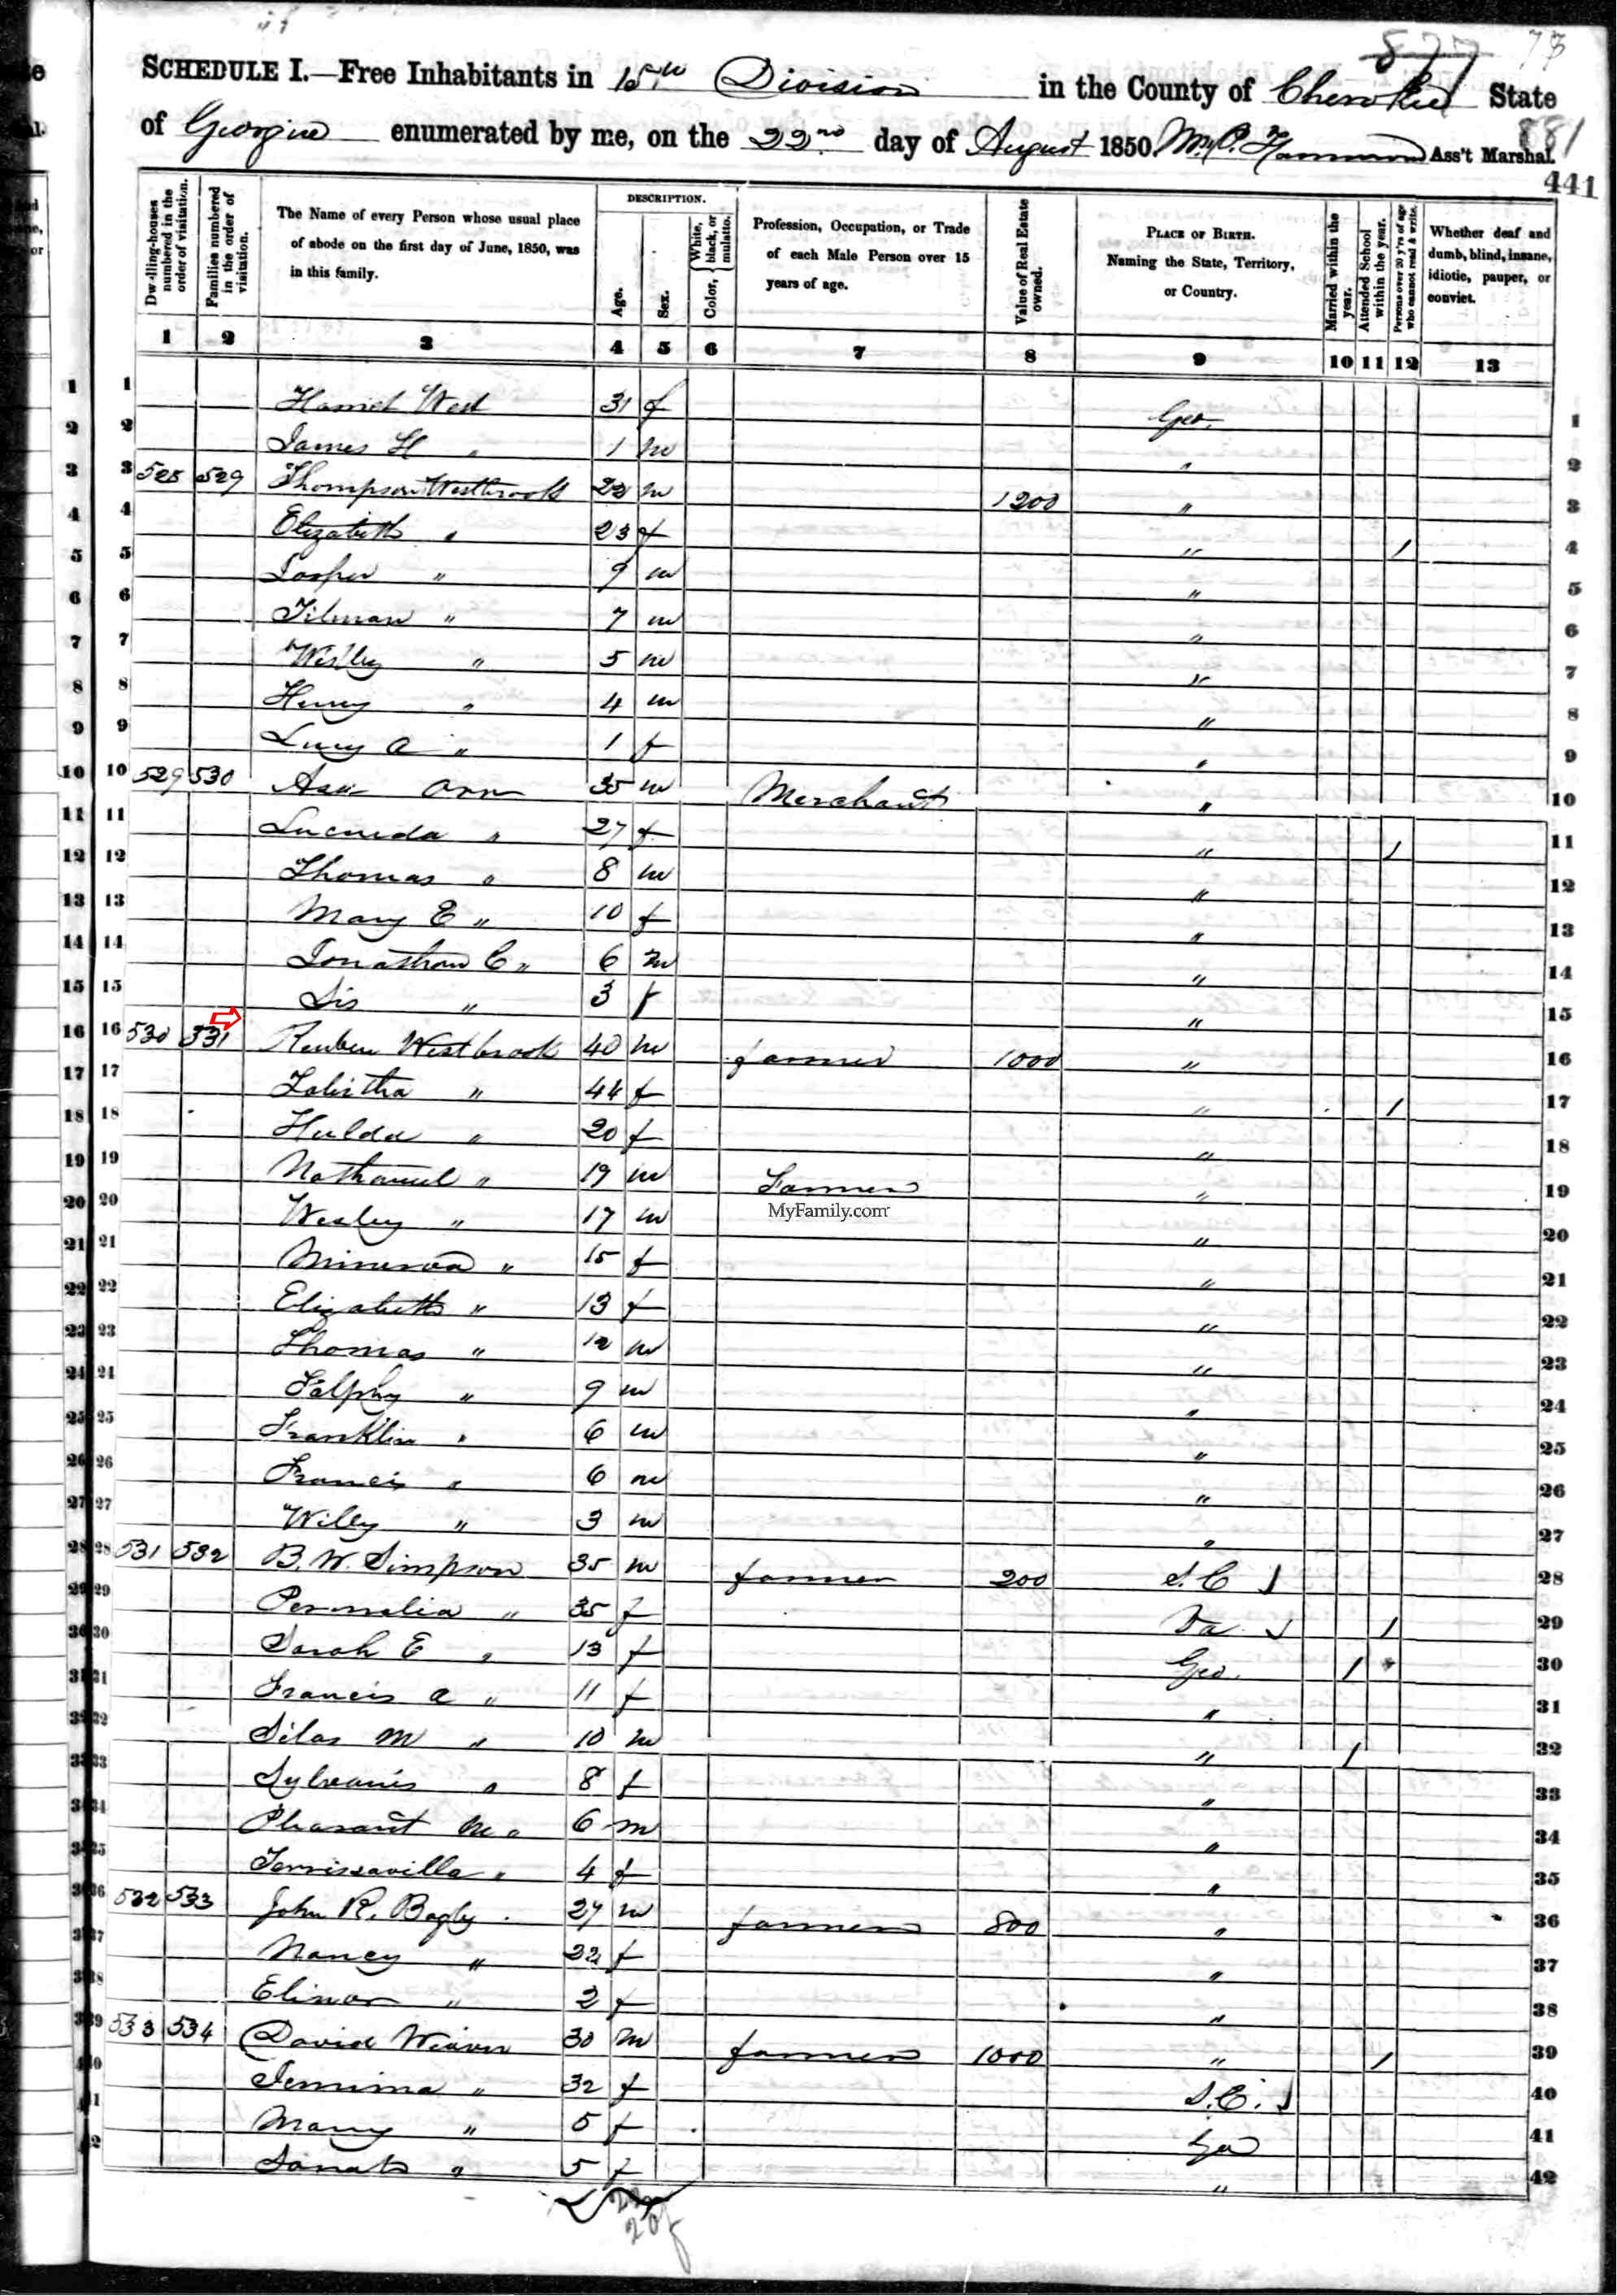 877 73
SCHEDULE I.—Free Inhabitants in 15th Division in the County of Cherokee State
of Georgia enumerated by me, on the 22nd day of August 1850. Ass't Marshal.
881
441
Dwelling-houses numbered in the order of visitation.
Families numbered in the order of visitation.
The Name of every Person whose usual place of abode on the first day of June, 1850, was in this family.
DESCRIPTION.
Age.
Sex.
Color, { White, black, or mulatto.
Profession, Occupation, or Trade of each Male Person over 15 years of age.
Value of Real Estate owned.
PLACE OF BIRTH. Naming the State, Territory, or Country.
Married within the year.
Attended School within the year.
Persons over 20 y'rs of age who cannot read & write.
Whether deaf and dumb, blind, insane, idiotic, pauper, or convict.
1 2 3 4 5 6 7 8 9 10 11 12 13
1 Harriet West 31 f Geo. 1
2 James H " 1 m " 2
3 528 529 Thompson Westbrook 22 m 1200 " 3
4 Elizabeth " 23 f " / 4
5 " 9 m " 5
6 Tilman " 7 m " 6
7 Wesley " 5 m " 7
8 Henry " 4 m " 8
9 Lucy A " 1 f " 9
10 529 530 Asa Orr 35 m Merchant " 10
11 Lucinda " 27 f " / 11
12 Thomas " 8 m " 12
13 Mary E " 10 f " 13
14 Jonathan C " 6 m " 14
15 Sis " 3 f " 15
16 530 531 Reuben Westbrook 40 m farmer 1000 " 16
17 Tabitha " 44 f " / 17
18 Hulda " 20 f " 18
19 Nathaniel " 19 m Farmer " 19
MyFamily.com
20 Wesley " 17 m " 20
21 Minerva " 15 f " 21
22 Elizabeth " 13 f " 22
23 Thomas " 12 m " 23
24 " 9 m " 24
25 Franklin " 6 m " 25
26 Francis " 6 m " 26
27 Wiley " 3 m " 27
28 531 532 B. W. Simpson 35 m farmer 200 S. C 28
29 Permelia " 35 f Va / 29
30 Sarah E " 13 f Geo. / 30
31 Francis A " 11 f " 31
32 Silas M " 10 m " / 32
33 Sylvanis " 8 f " 33
34 Pleasant M " 6 m " 34
35 " 4 f " 35
36 532 533 John R. Bagly 27 m farmer 800 " 36
37 Nancy " 22 f " 37
38 Elinor " 2 f " 38
39 533 534 David Weaver 30 m farmer 1000 " / 39
40 Jemima " 32 f S. C. 40
41 Mary " 5 f Geo 41
42 " 5 f " 42